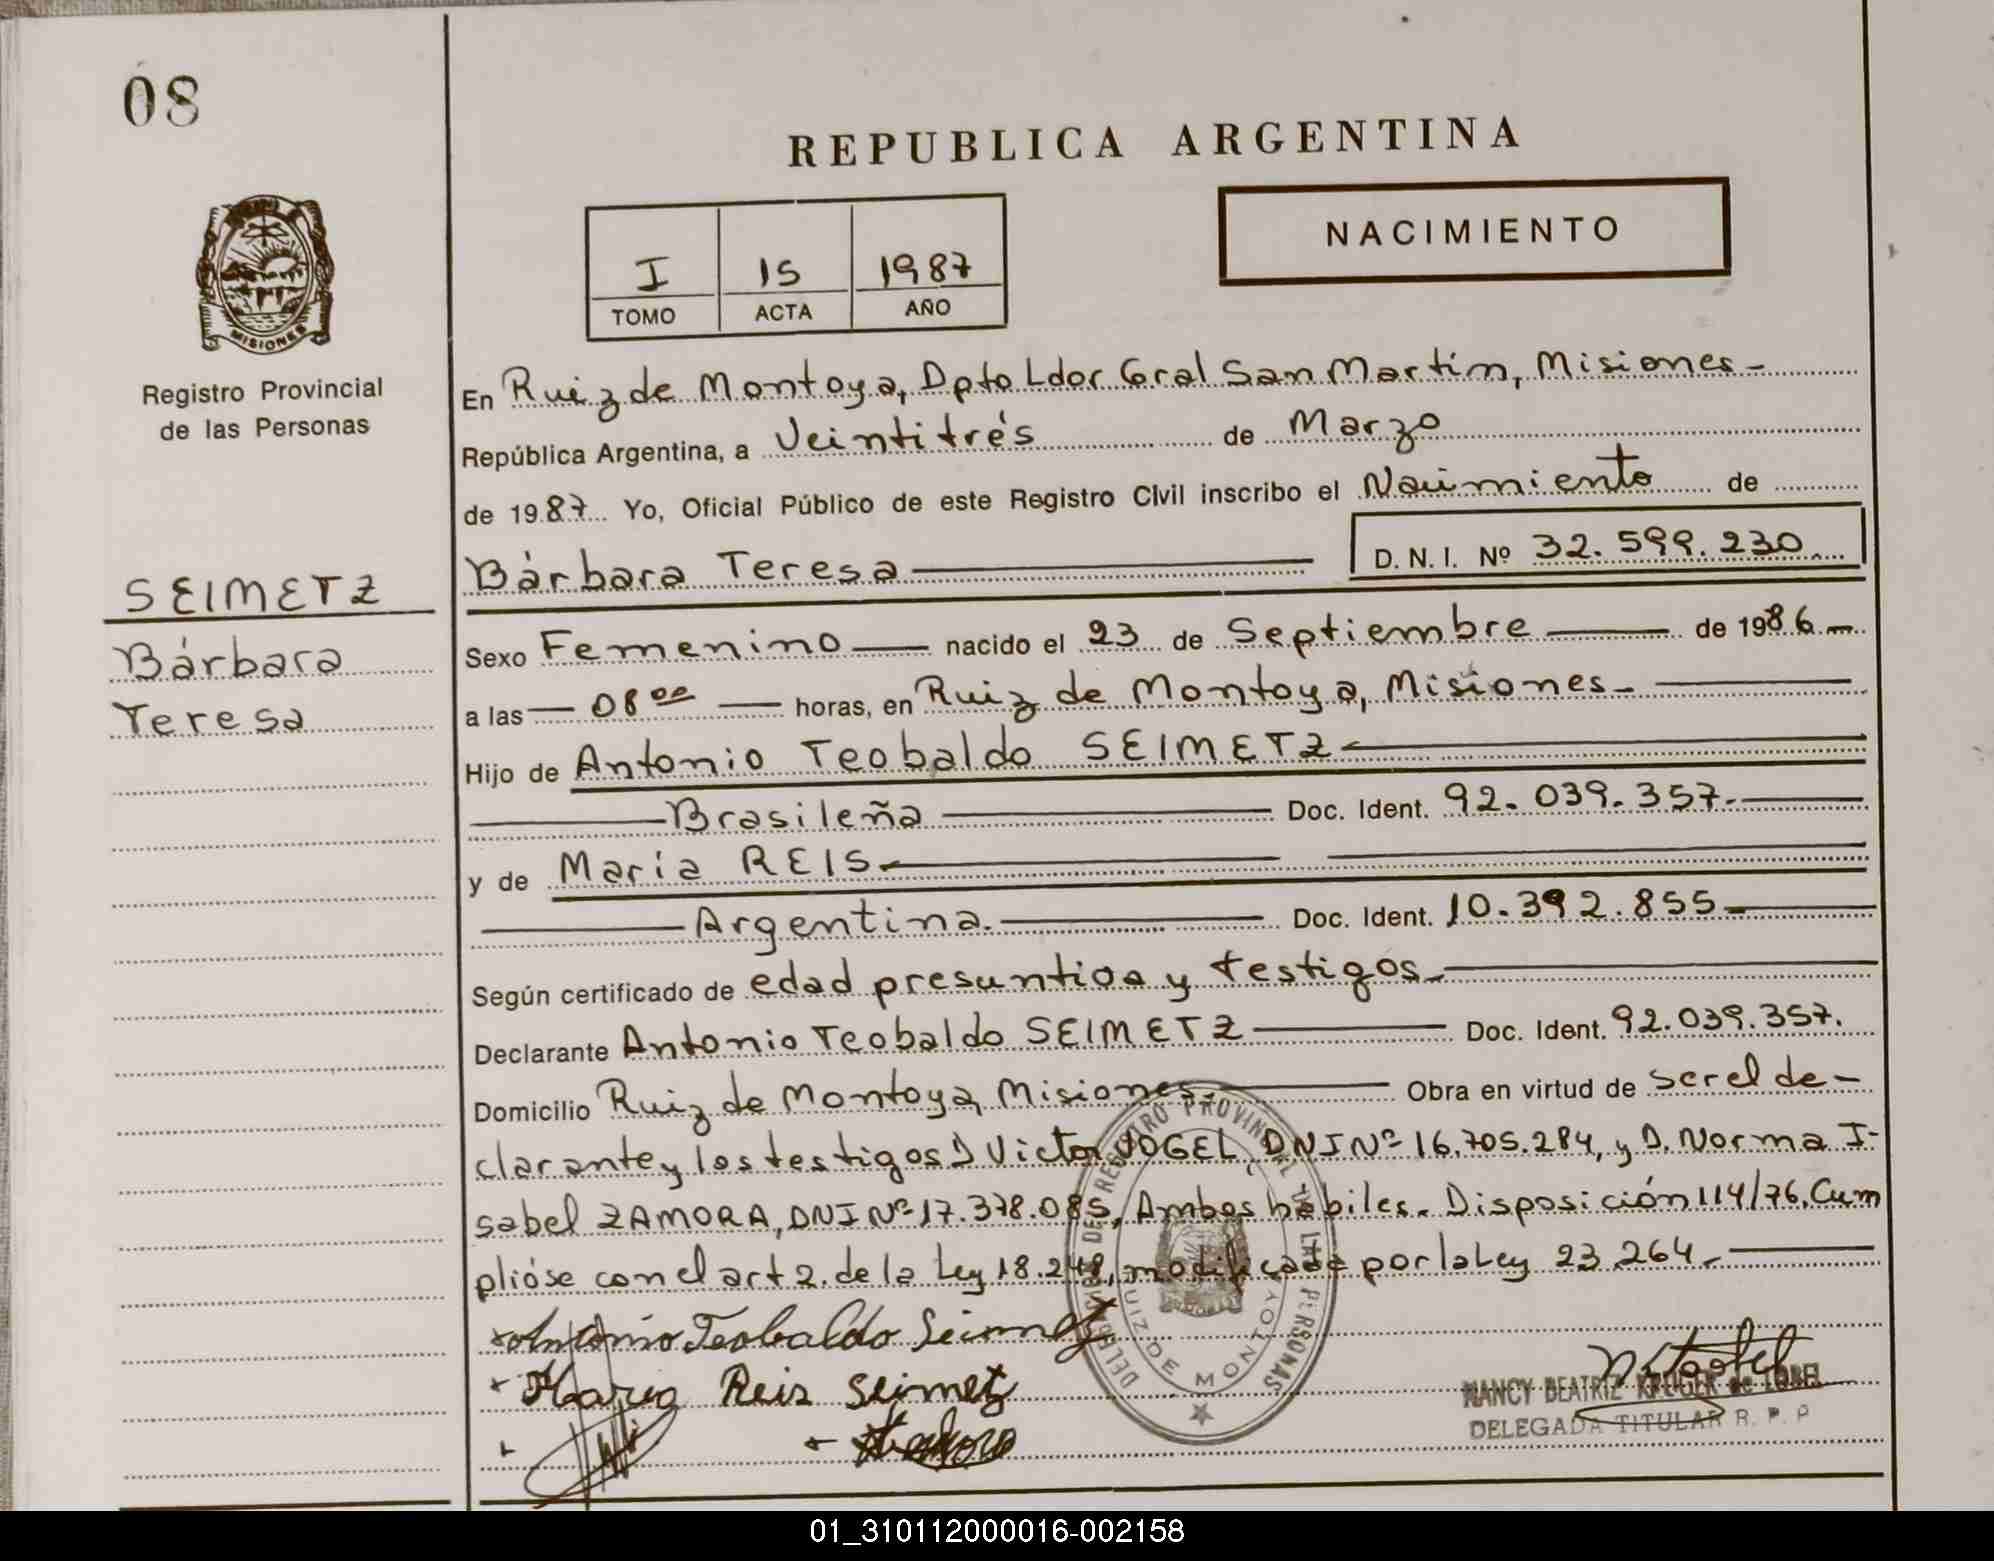 08
REPUBLICA ARGENTINA
NACIMIENTO
I 15 1987
TOMO ACTA AÑO
MISIONES
Registro Provincial
de las Personas
En Ruiz de Montoya, Dpto Ldor Gral San Martín, Misiones -
República Argentina, a Veintitrés de Marzo
de 1987 Yo, Oficial Público de este Registro Civil inscribo el Nacimiento de
Bárbara Teresa D.N.I. Nº 32.599.230
SEIMETZ
Bárbara
Teresa
Sexo Femenino nacido el 23 de Septiembre de 1986
a las 08 00 horas, en Ruiz de Montoya, Misiones -
Hijo de Antonio Teobaldo SEIMETZ
Brasileña Doc. Ident. 92.039.357.
y de María REIS
Argentina. Doc. Ident. 10.392.855
Según certificado de edad presuntiva y testigos.
Declarante Antonio Teobaldo SEIMETZ Doc. Ident. 92.039.357.
Domicilio Ruiz de Montoya, Misiones. Obra en virtud de ser el de-
clarante y los testigos D Victor VOGEL, DNI Nº 16.705.284, y D. Norma I-
sabel ZAMORA, DNI Nº 17.378.085, Ambos hábiles. Disposición 114/76. Cum
plióse con el art 2. de la Ley 18.248, modificada por la Ley 23.264.
Antonio Teobaldo Seimetz
Maria Reis Seimetz
DELEGACION DE REGISTRO PROVINCIAL DE LAS PERSONAS
RUIZ DE MONTOYA
NANCY BEATRIZ KRUGER de
DELEGADA TITULAR R. P. P
01_310112000016-002158